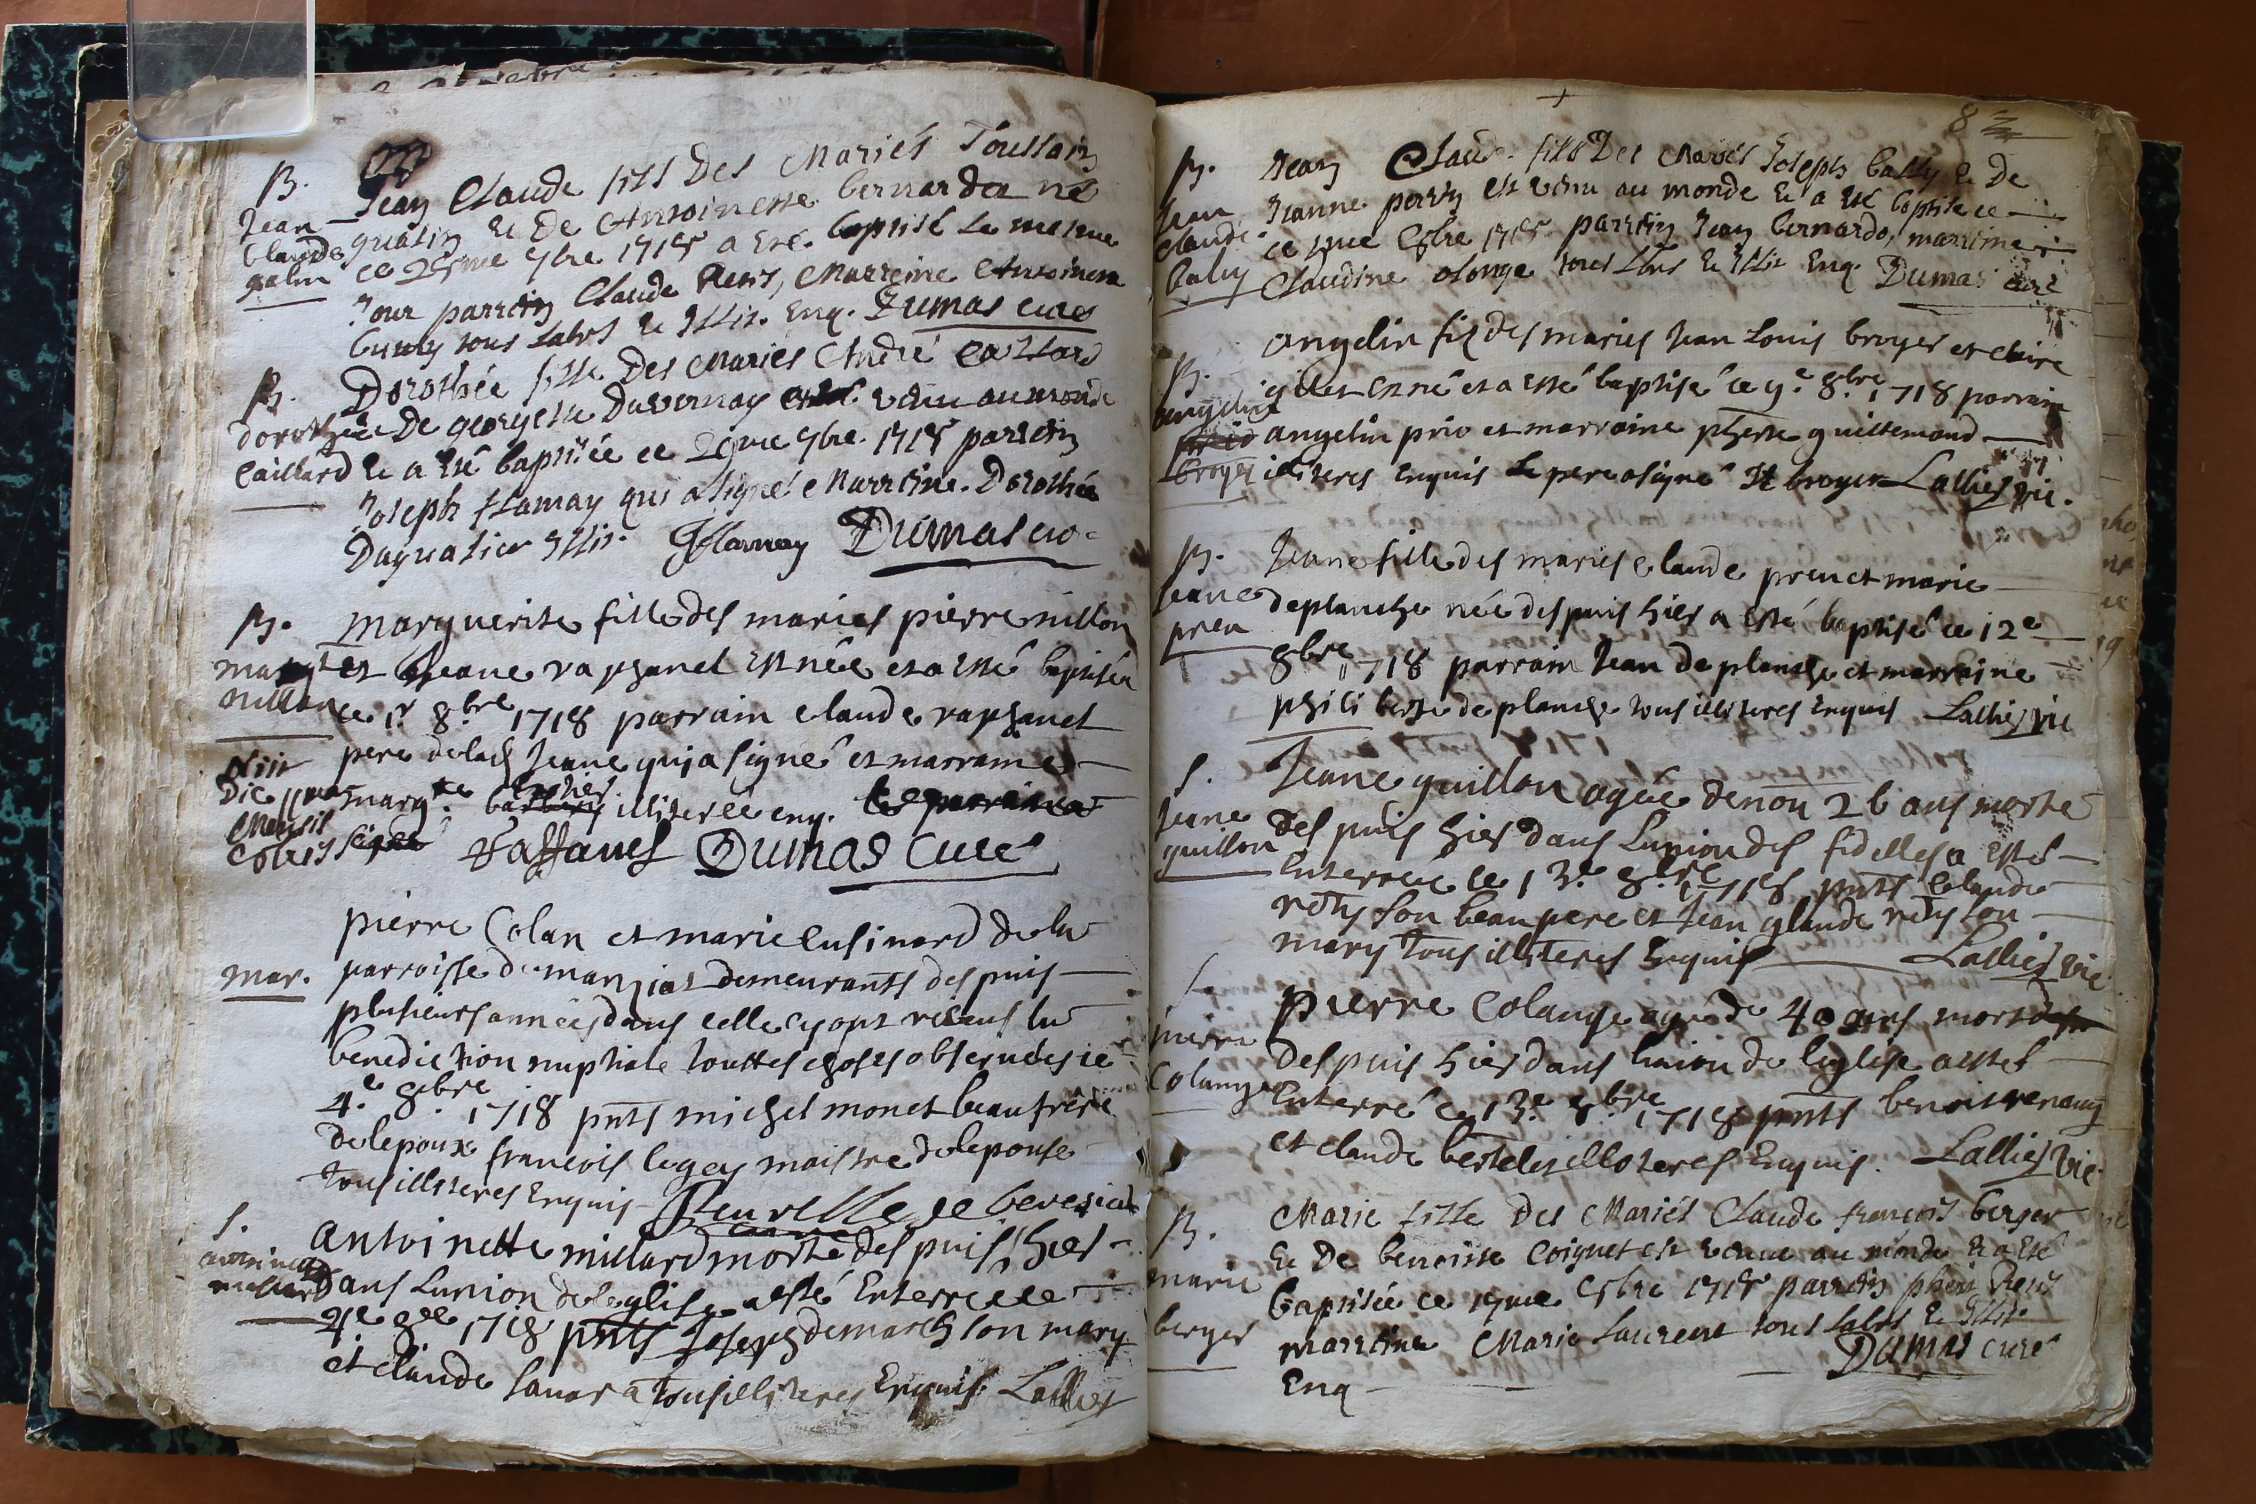 B.
Jean
Claude
galin
Jean Claude fils Des Mariés Toussain
gualin et De Antoinette bernarda né
ce 25me 7bre 1718 a esté baptisé Le mesme
Jour parrein Claude Marreine Antoinette
tous Labrs et Illit. Enq. Dumas curé
B.
dorothée
Caillard
Dorothée fille Des Mariés André Caillard
De georgette Duvernay venu au monde
et a esté baptisée ce 29me 7bre 1718 parrein
Joseph flamay qui a signé Marreine Dorothée
Duguatier Illit. JFlamay Dumas cu
B.
margte
nillon
marguerite fille des mariés pierre nillon
et Jeane raphanel est née et a esté baptisée
ce 1r 8bre 1718 parrain claude raphanel
pere de lad Jeane qui a signé et marraine
margte illiterée enq.
Raffanel Dumas Curé
obiit
Die
Mensis
mar.
pierre Colan et marie cusinard de la
parroisse de manziat demeurants despuis
plusieurs années dans celle cy ont receus la
benediction nuptiale touttes choses observées ce
4.e 8bre 1718 pnts michel monet beau frere
de lepoux francois legey maistre de lepouse
tous illiteres Enquis
S.
antoinette
millard
Antoinette millard morte despuis hier
dans Lunion de leglise a esté Enterree le
4e 8bre 1718 pnts Joseph demarch son mary
et claude tous illiteres Enquis Lallier
8
B.
Jean
Claude
Baly
Jean Claude fils Des Mariés Joseph Bally et De
Jeanne perrin est venu au monde et a esté baptisé ce
ce 8bre 1718 parrein Jean bernardo, marreine
Claudine olonge tous Lbrs et Illit Enq. Dumas curé
B.
angelin
broyer
angelin fiz des mariés Jean Louis broyer et claire
gillet est né et a esté baptisé ce 9.e 8.bre 1718 parrain
angelin prio et marraine guillemand
illiteres Enquis Le pere a signé broyer Lallier vic.
B.
Jeane
preu
Jeane fille des mariés claude preu et marie
deplanche née despuis hier a esté baptisé ce 12e
8bre 1718 parrain Jean deplanche et marraine
philiberte deplanche tous illiteres Enquis Lallier vic
S.
Jeane
guillon
Jeane guillon agée denon 26 ans morte
despuis hier dans Lunion des fidelles a esté
Enterree le 13.e 8.bre 1718 pnts Claude
rety son beau pere et Jean glaude rety son
mary tous illiteres Enquis Lallier vic.
S.
pierre
Colange
pierre Colange agé de 40 ans mort
despuis hier dans lunion de leglise a esté
Enterré ce 13.e 8.bre 1718 pnts benoit renaug
et claude illoteres Enquis. Lallier vic.
B.
marie
berger
Marie fille Des Mariés Claude francois berger
Et De benoiste Coignet est venue au monde et a esté
baptisée ce 8bre 1718 parrein
marreine Marie Laurent tous Labrs et Illit.
Enq Dumas curé